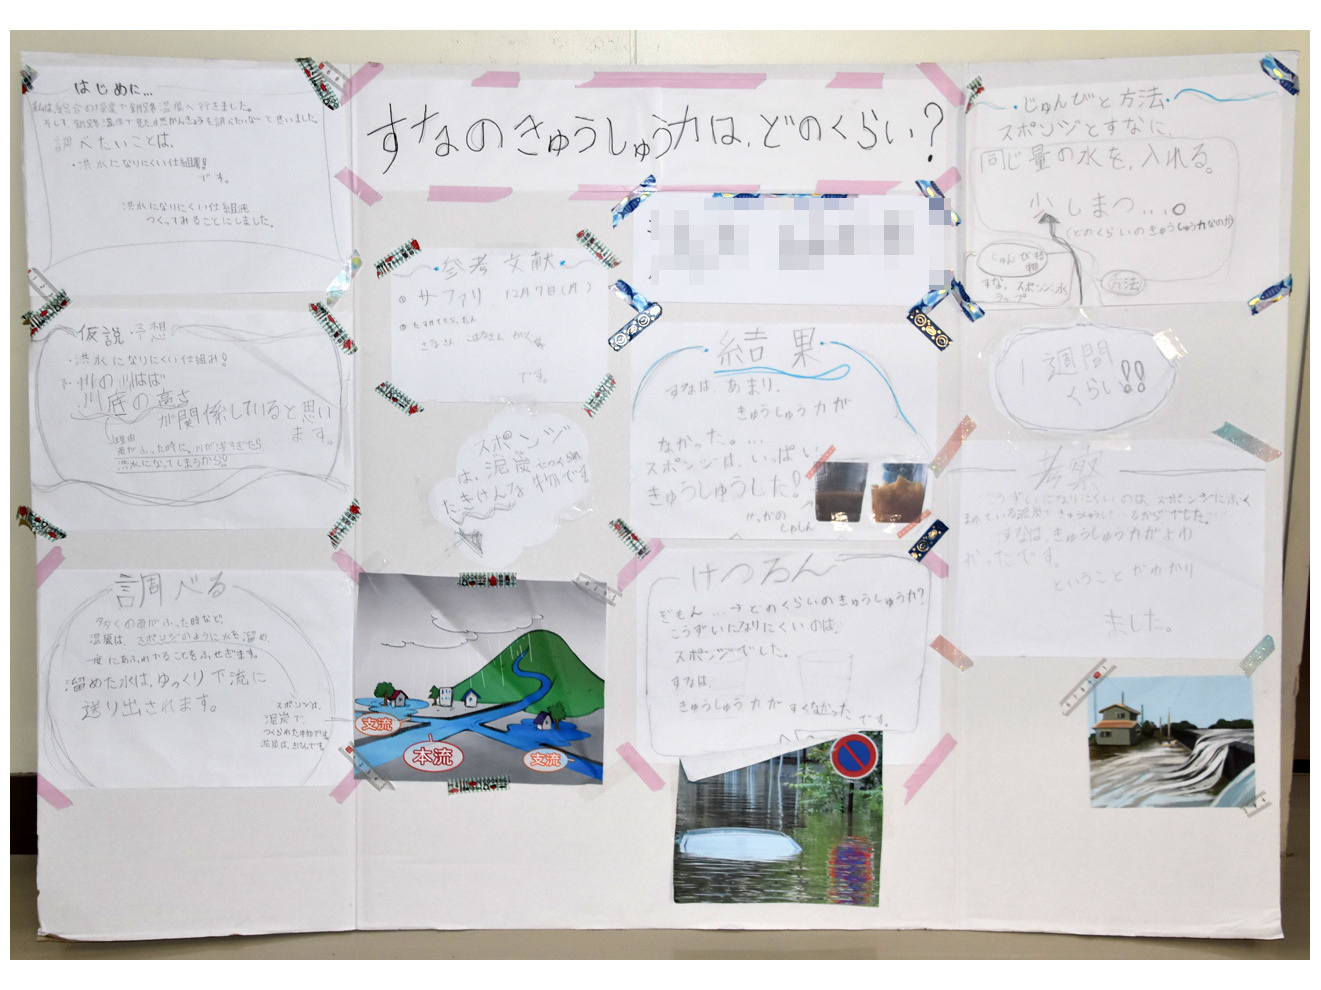 すなのきゅうしゅう力は、どのくらい?
はじめに…
私は総合の授業で釧路湿原へ行きました。
そして釧路湿原で自然かんきょうを調べたいな〜と思いました
調べたいことは、
・洪水になりにくい仕組み!
です。
洪水になりにくい仕組を
つくってみることにしました。
仮説・予想
・洪水になりにくい仕組み!
で・川の川はば
川底の高さ
が関係していると思い
ます。
理由
雨がふった時に、川が
洪水になってしまうから!!
調べる
多くの雨がふった時など
湿原は、スポンジのように水を溜め、
一度にあふれでることをふせぎます。
溜めた水は、ゆっくり下流に
送り出されます。
スポンジは、
泥炭で、
つくられた物です。
参考文献
サーファリ 12月7日(月)
です。
スポンジ
は、泥炭でつくられ
た 物です
支流
本流
支流
結果
すなは、あまり、
きゅうしゅう力が
なかった。…
スポンジは、いっぱい
きゅうしゅうした!
けっかの
しゃしん
けつろん
ぎもん…→どのくらいのきゅうしゅう力?
こうずいになりにくいのは、
スポンジでした。
すなは、
きゅうしゅう力が すくなかった
です。
じゅんびと方法
スポンジとすなに、
同じ量の水を、入れる。
少しまつ…。
(どのくらいのきゅうしゅう力なのか)
じゅんびする
物
すな、スポンジ、水
コップ
方法
1週間
くらい!!
考察
こうずいになりにくいのは、スポンジにふく
まれている泥炭がきゅうしゅうしているからでした…
すなは、きゅうしゅう力がよわ
かったです。
ということがわかり
ました。